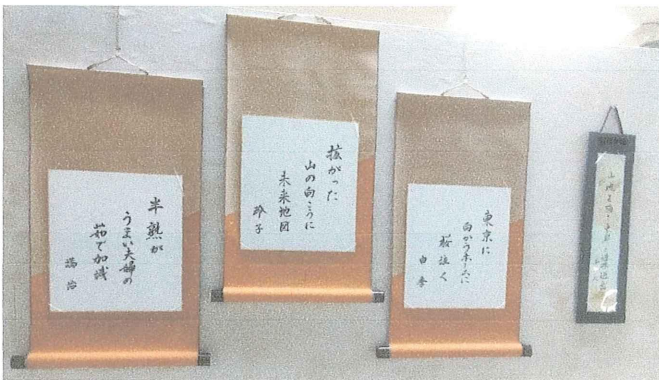 半熟が
うまい夫婦の
茹で加減
拡がった
山の向こうに
未来地図
玲子
東京に
向かうホームに
桜泣く
由季